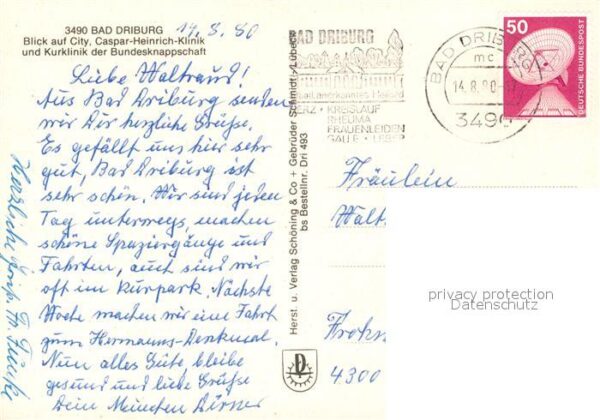 3490 BAD DRIBURG
Blick auf City, Caspar-Heinrich-Klinik
und Kurklinik der Bundesknappschaft
14. 8. 80
Liebe Waltraud!
Aus Bad Driburg senden
wir Dir herzliche Grüße.
Es gefällt uns hier sehr
gut, Bad Driburg ist
sehr schön. Wir sind jeden
Tag unterwegs machen
schöne Spaziergänge und
Fahrten, auch sind wir
oft im Kurpark. Nächste
Woche machen wir eine Fahrt
zum Hermanns-Denkmal.
Nun alles Gute bleibe
gesund und liebe Grüße
Dein
Herzliche
Herst. u. Verlag Schöning & Co + Gebrüder Schmidt, Lübeck
bs Bestellnr. Dri 493
BAD DRIBURG
HERZ · KREISLAUF
RHEUMA
FRAUENLEIDEN
GALLE · LEBER
BAD DRIBURG
mc
14.8.80
3490
50
DEUTSCHE BUNDESPOST
Fräulein
Walt
Frohn
4300
privacy protection
Datenschutz